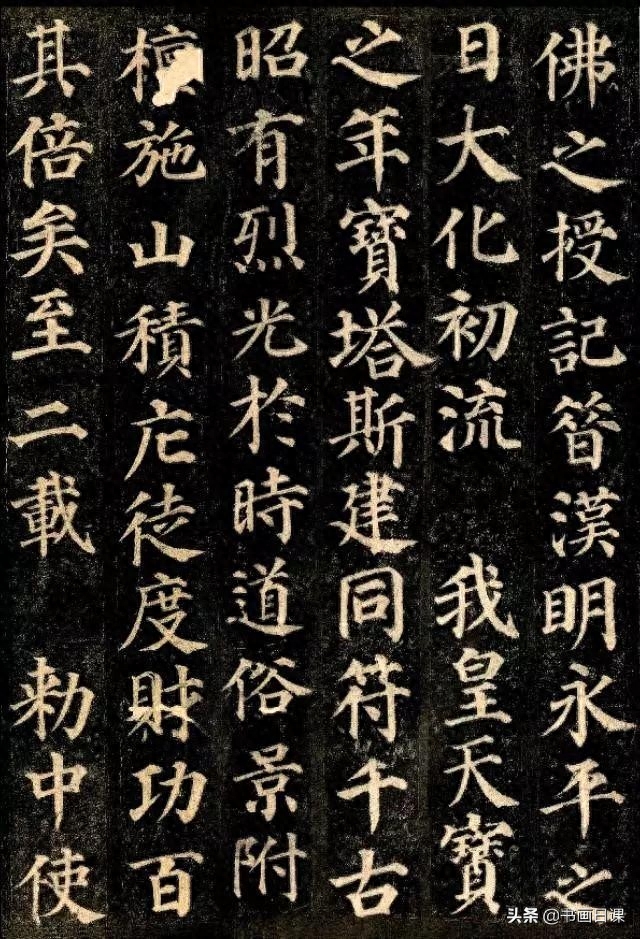 佛之授記昝漢明永平之
日大化初流　我皇天寶
之年寶塔斯建同符千古
昭有烈光於時道俗景附
檀施山積庀徒度財功百
其倍矣至二載　勅中使
头条 @书画日课